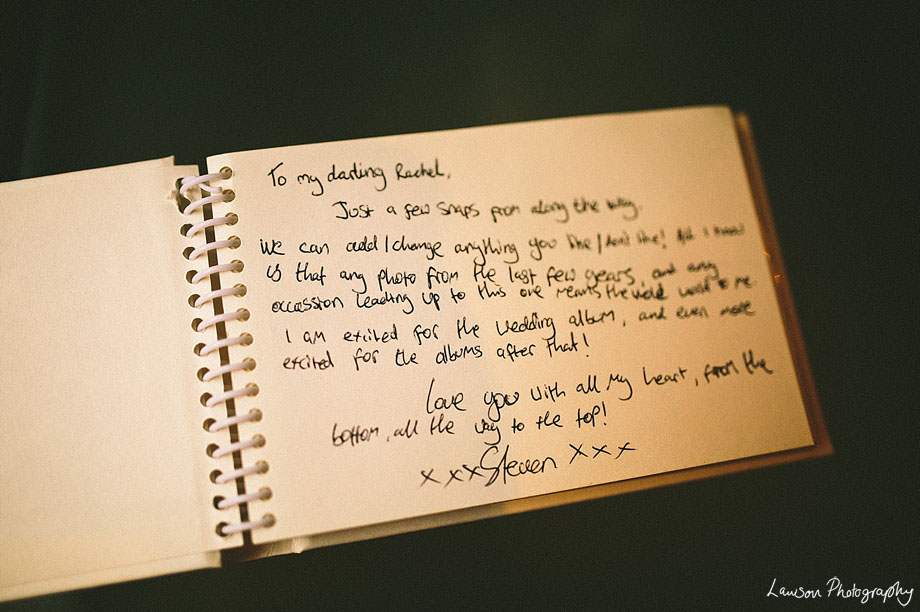 To my darling Rachel,
Just a few snaps from along the way.
We can add/change anything you like/don't like! All I know
is that any photo from the last few years, and any
occassion leading up to this one means the whole world to me.
I am excited for the wedding album, and even more
excited for the albums after that!
Love you with all my heart, from the
bottom, all the way to the top!
xxx Steven xxx
Lawson Photography